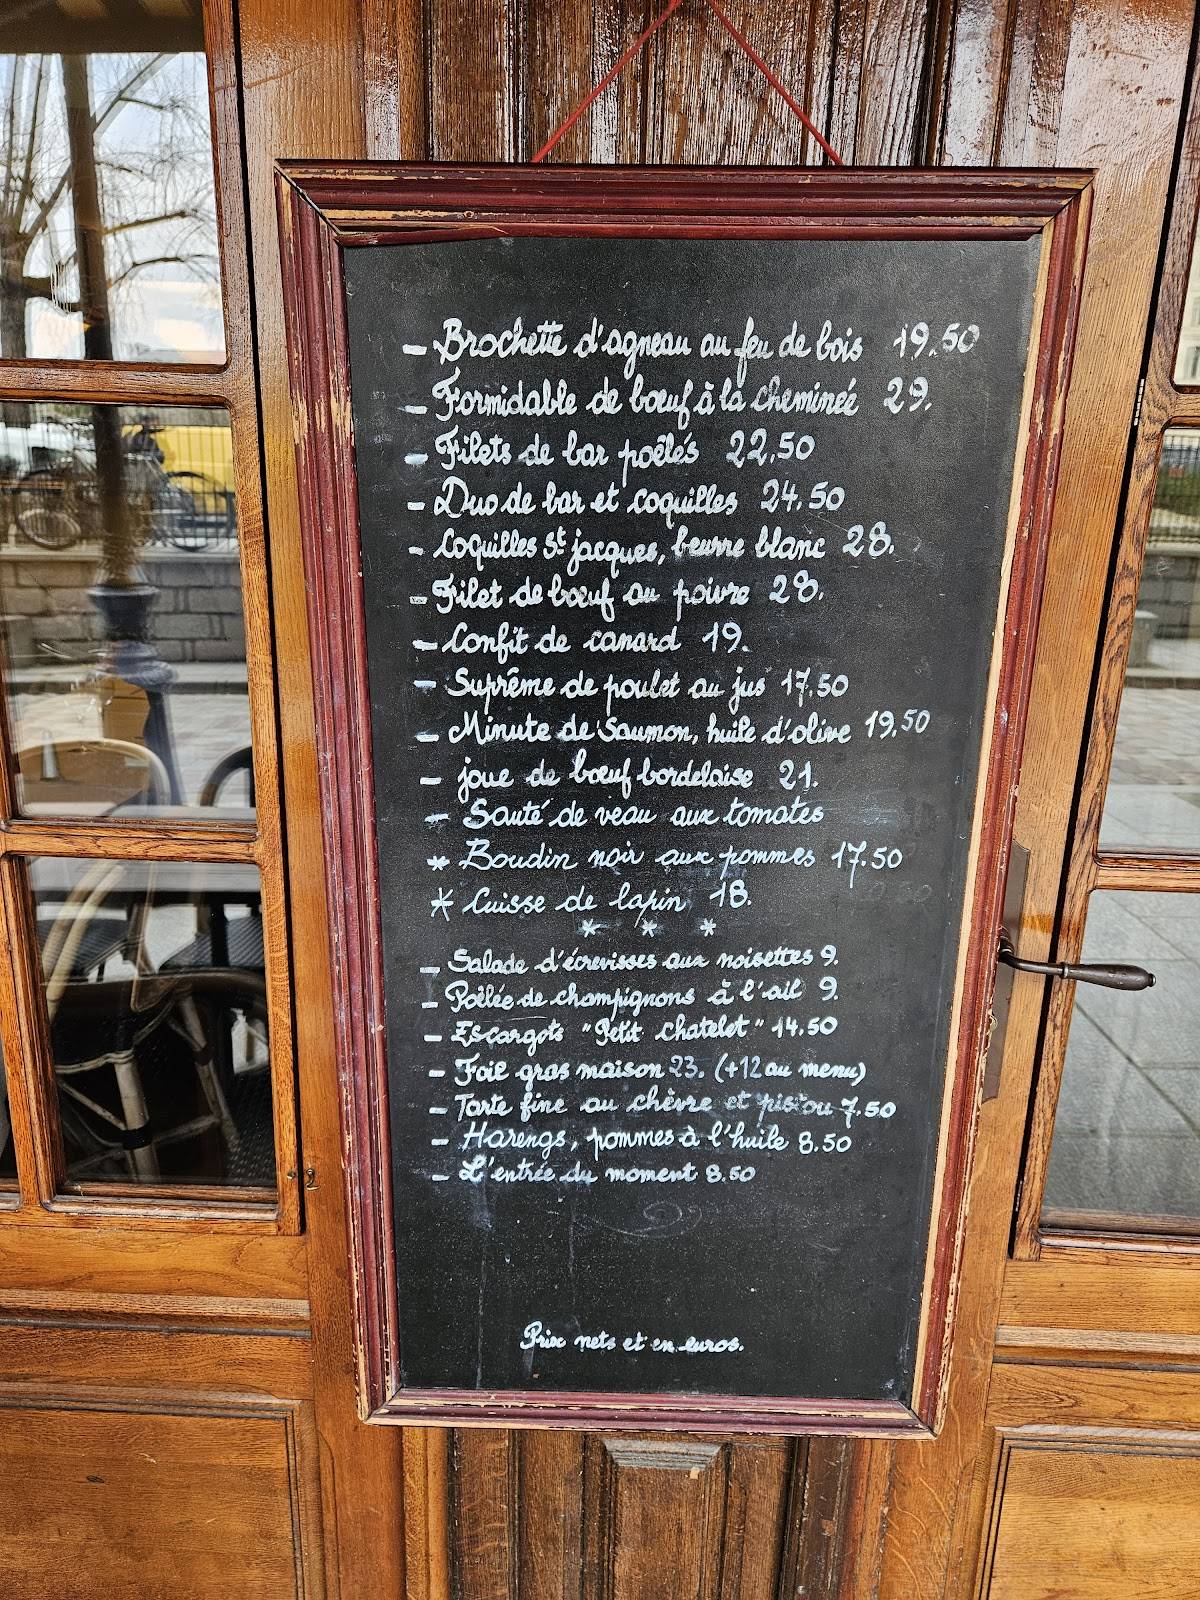 - Brochette d'agneau au feu de bois 19.50
- Formidable de bœuf à la cheminéé 29.
- Filets de bar poêlés 22,50
- Duo de bar et coquilles 24.50
- Coquilles St jacques, beurre blanc 28.
- Filet de bœuf au poivre 28.
- Confit de canard 19.
- Suprême de poulet au jus 17.50
- Minute de Saumon, huile d'olive 19.50
- joue de bœuf bordelaise 21.
- Sauté de veau aux tomates
* Boudin noir aux pommes 17.50
* Cuisse de lapin 18.
* * *
- Salade d'écrevisses aux noisettes 9.
- Poêlée de champignons à l'ail 9.
- Escargots "Petit Chatelet" 14.50
- Foie gras maison 23. (+12 au menu)
- Tarte fine au chèvre et pistou 7.50
- Harengs, pommes à l'huile 8.50
- L'entrée du moment 8.50
Prix nets et en euros.